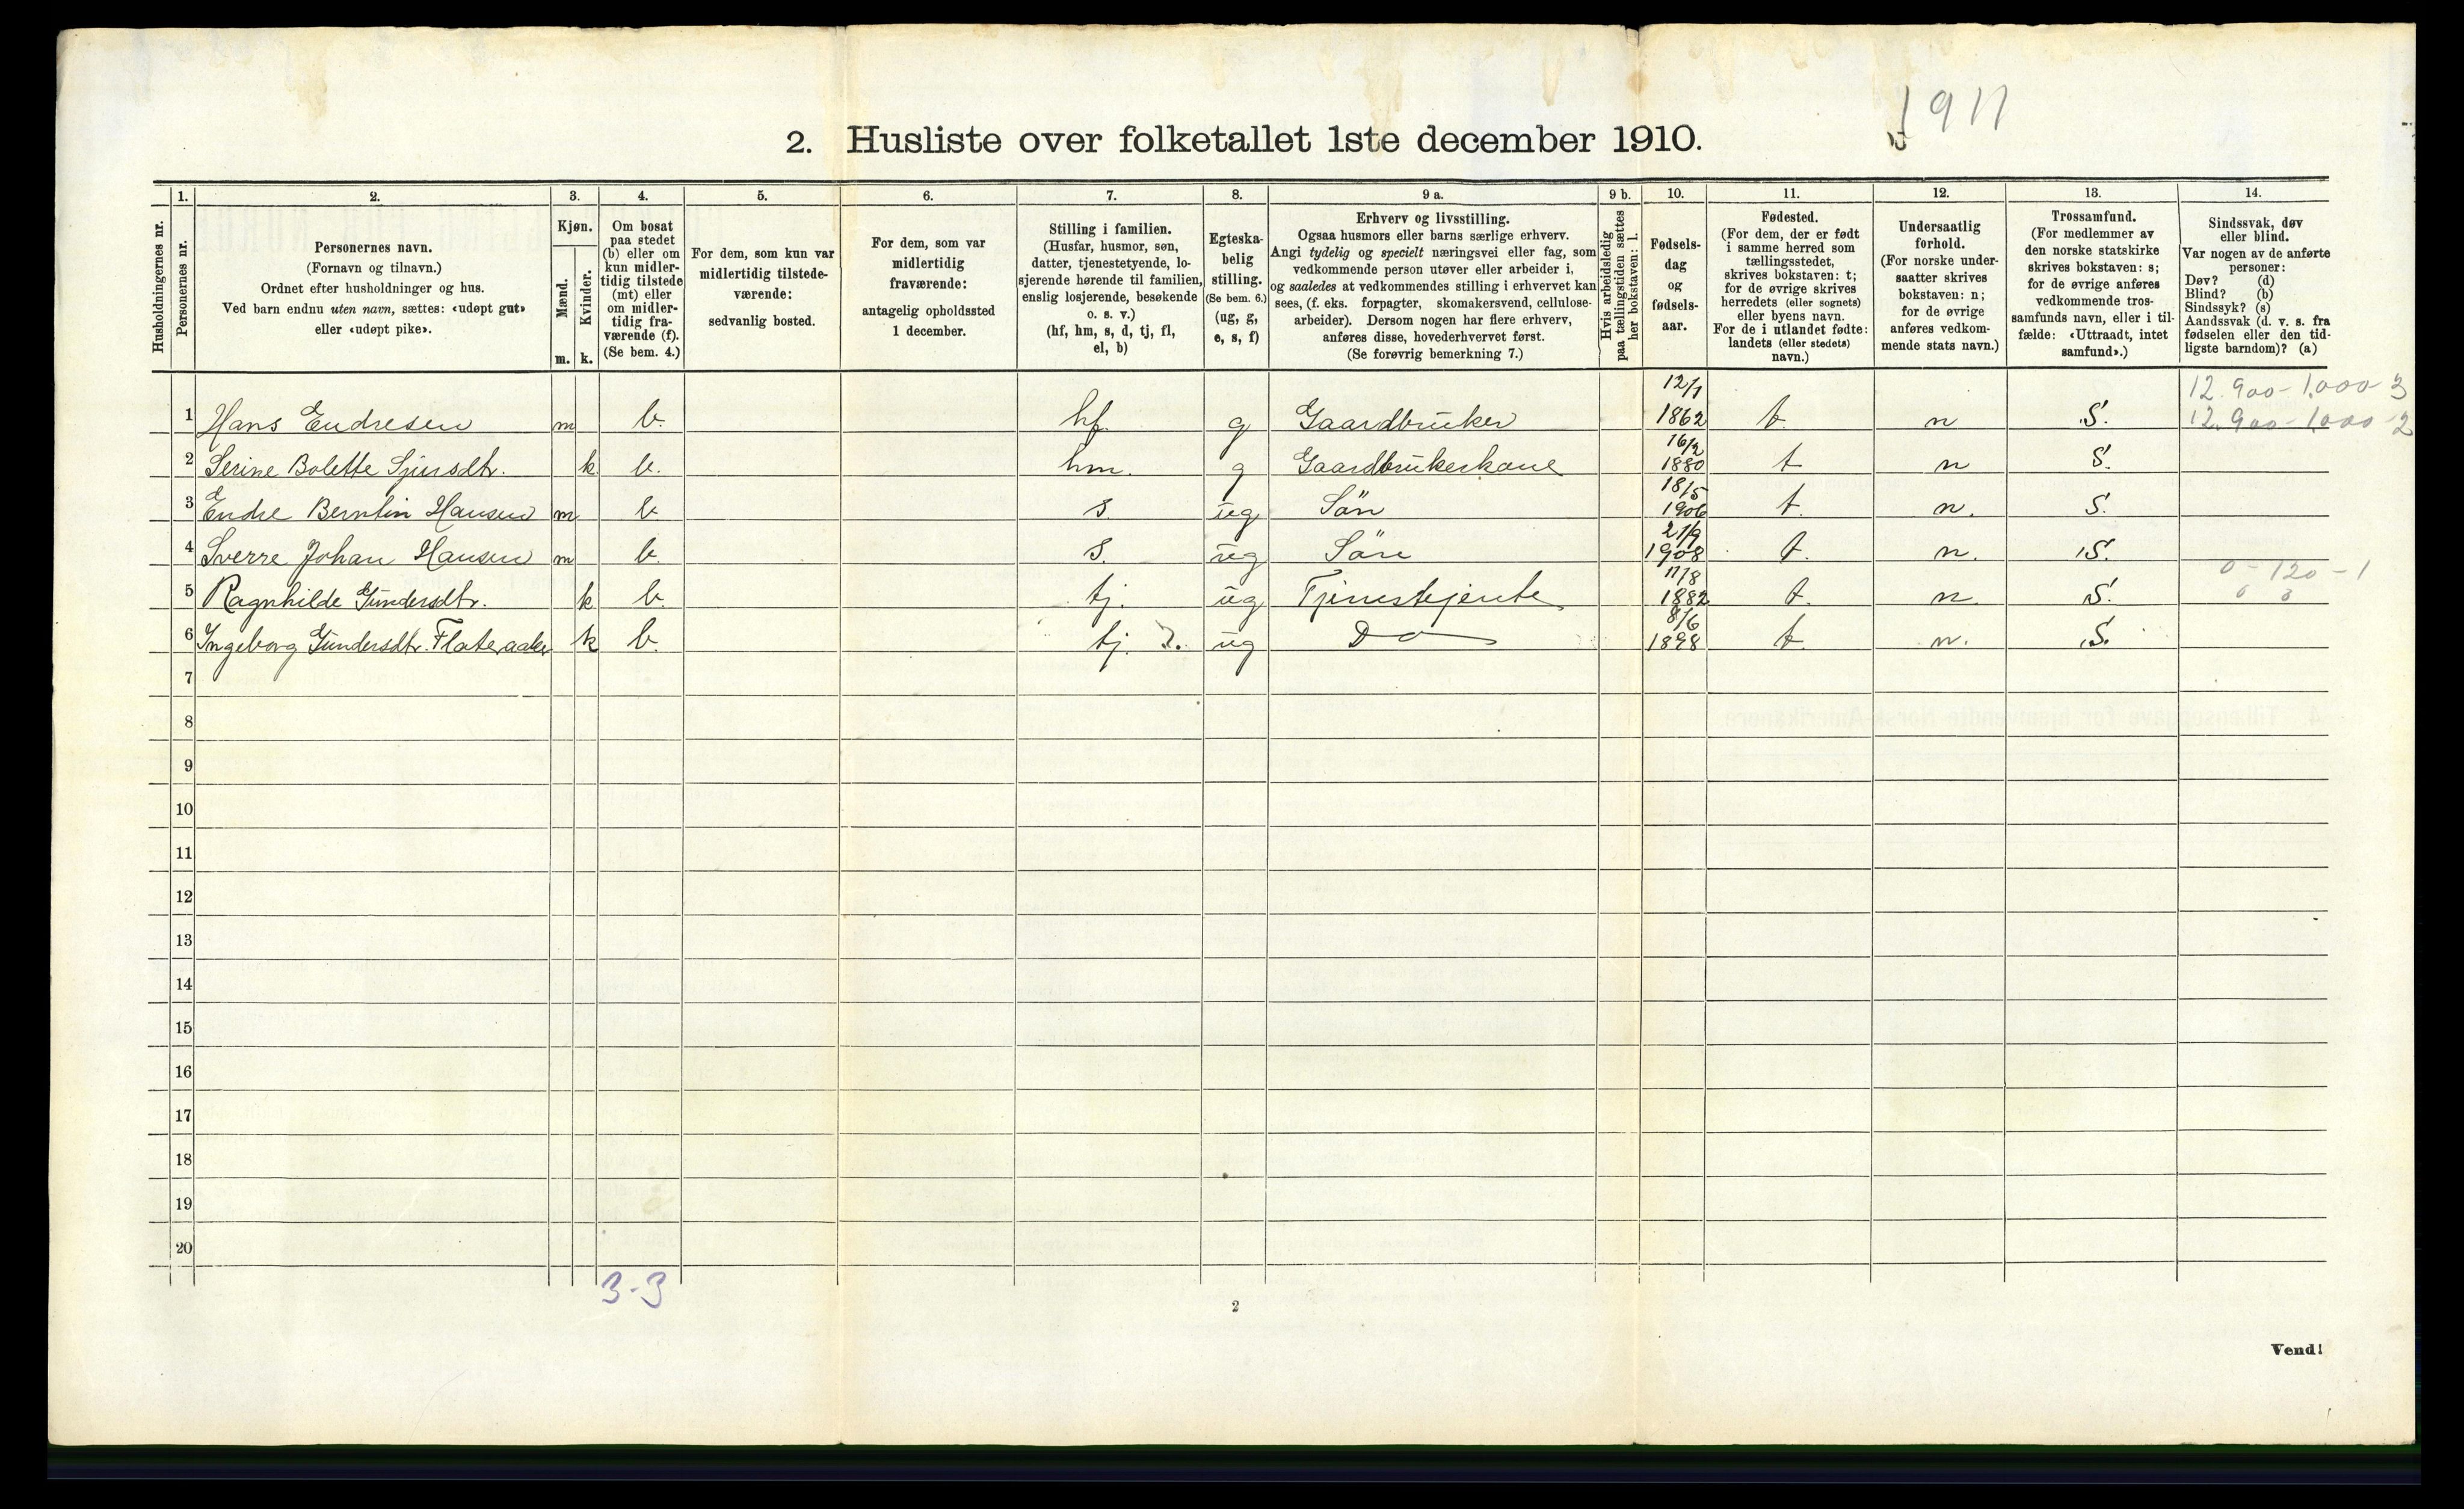 1911
2. Husliste over folketallet 1ste december 1910.
1. 2. 3. 4. 5. 6. 7. 8. 9 a. 9 b. 10. 11. 12. 13. 14.
Husholdningernes nr.
Personernes nr.
Personernes navn.
(Fornavn og tilnavn.)
Ordnet efter husholdninger og hus.
Ved barn endnu uten navn, sættes: «udøpt gut»
eller «udøpt pike».
Kjøn.
Mænd.
m.
Kvinder.
k.
Om bosat
paa stedet
(b) eller om
kun midler-
tidig tilstede
(mt) eller
om midler-
tidig fra-
værende (f).
(Se bem. 4.)
For dem, som kun var
midlertidig tilstede-
værende:
sedvanlig bosted.
For dem, som var
midlertidig
fraværende:
antagelig opholdssted
1 december.
Stilling i familien.
(Husfar, husmor, søn,
datter, tjenestetyende, lo-
sjerende hørende til familien,
enslig losjerende, besøkende
o. s. v.)
(hf, hm, s, d, tj, fl,
el, b)
Egteska-
belig
stilling.
(Se bem. 6.)
(ug, g,
e, s, f)
Erhverv og livsstilling.
Ogsaa husmors eller barns særlige erhverv.
Angi tydelig og specielt næringsvei eller fag, som
vedkommende person utøver eller arbeider i,
og saaledes at vedkommendes stilling i erhvervet kan
sees, (f. eks. forpagter, skomakersvend, cellulose-
arbeider). Dersom nogen har flere erhverv,
anføres disse, hovederhvervet først.
(Se forøvrig bemerkning 7.)
Hvis arbeidsledig
paa tællingstiden sættes
her bokstaven: l.
Fødsels-
dag
og
fødsels-
aar.
Fødested.
(For dem, der er født
i samme herred som
tællingsstedet,
skrives bokstaven: t;
for de øvrige skrives
herredets (eller sognets)
eller byens navn.
For de i utlandet fødte:
landets (eller stedets)
navn.)
Undersaatlig
forhold.
(For norske under-
saatter skrives
bokstaven: n;
for de øvrige
anføres vedkom-
mende stats navn.)
Trossamfund.
(For medlemmer av
den norske statskirke
skrives bokstaven: s;
for de øvrige anføres
vedkommende tros-
samfunds navn, eller i til-
fælde: «Uttraadt, intet
samfund».)
Sindssvak, døv
eller blind.
Var nogen av de anførte
personer:
Døv? (d)
Blind? (b)
Sindssyk? (s)
Aandssvak (d. v. s. fra
fødselen eller den tid-
ligste barndom)? (a)
12.900-1.000-3
1 Hans Endresen m b. hf. g Gaardbruker 12/1 1862 t. n S. 12.900-1.000-2
2 Serine Bolette Sjursdtr. k b. hm. g Gaardbrukerkone 16/2 1880 t n S.
3 Endre Berntin Hansen m b s. ug Søn 18/5 1906 t. n. S.
4 Sverre Johan Hansen m b. s. ug Søn 21/9 1908 t. n. S.
0-120-1
5 Ragnhilde Gundersdtr. k b. tj. ug Tjenestejente 11/8 1882 t. n. S.
6 Ingeborg Gundersdtr. Flateraaker k b. tj. ug Do 8/6 1898 t. n. S.
7
8
9
10
11
12
13
14
15
16
17
18
19
20
3-3
2
Vend!